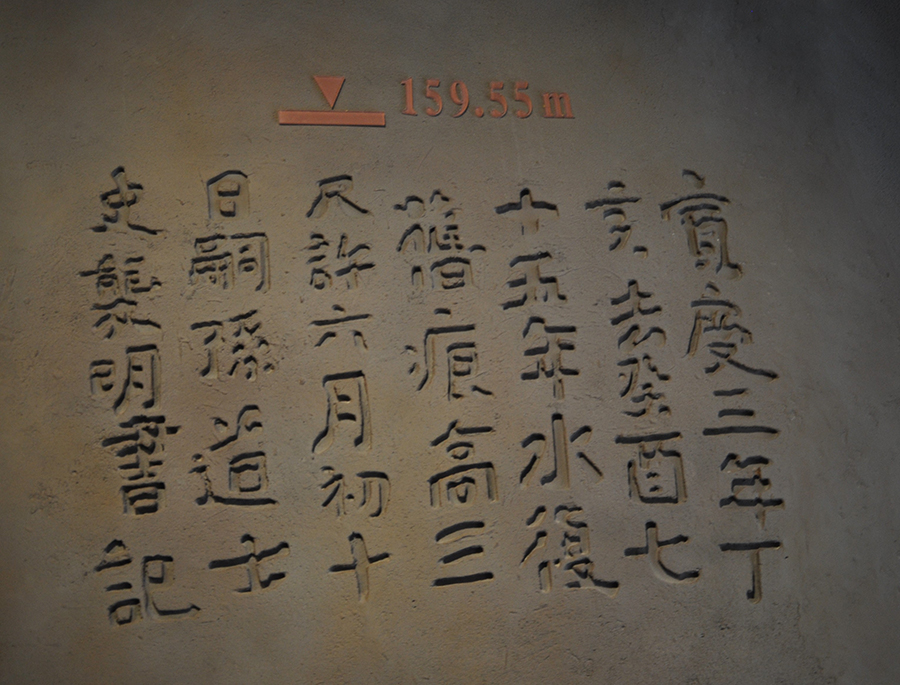 159.55m
寳慶三年丁
亥去癸酉七
十五年水復
舊痕高三
尺許六月初十
日嗣孫道士
史襲明書記